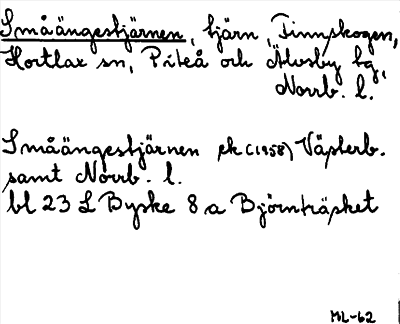 Småängestjärnen, tjärn, Finnskogen,
Hortlax sn, Piteå och Älvsby kg,
Norrb. l.
Småängestjärnen ek (1958) Västerb.
samt Norrb. l.
bl 23 L Byske 8 a Björnträsket
ML-62